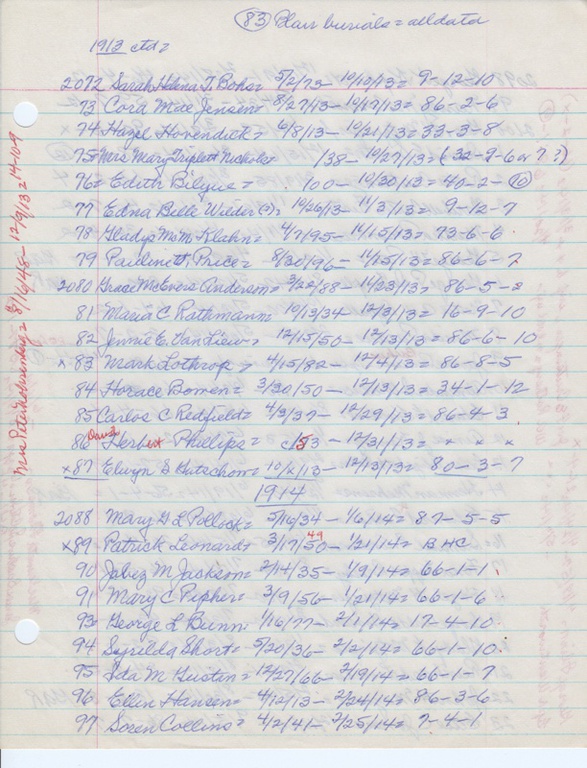 83 Blair burials = all data
1913 ctd =
2072 Sarah Helena T. Boks= 5/2/73- 10/10/13= 9-12-10
73 Cora Mae Jensen= 8/27/13- 10/17/13= 86-2-6
74 Hazel Hovendick= 6/8/13- 10/21/13= 33-3-8
75= Mrs Mary Triplett Nichols= /38- 10/27/13= (32-9-6 or 7?)
76= Edith Bilyue= /00- 10/30/13= 40-2-10
77 Edna Belle Wilder (?)= 10/26/13- 11/3/13= 9-12-7
78 Gladys McM. Klahn= 4/7/95- 11/15/13= 73-6-6
79 Price= 8/30/96- 11/15/13= 86-6-7
2080 Grace McEvers Anderson= 3/22/88- 11/23/13= 86-5-2
81 Maria C Rathmann= 10/13/34 12/3/13= 16-9-10
82 Jennie E. Van Liew= 12/15/50- 12/13/13= 86-6-10
x 83 Mark Lothrop= 4/15/82- 12/4/13= 86-8-5
84 Horace Bowen= 3/30/50- 12/13/13= 34-1-12
85 Carlos C Redfield= 4/3/37- 12/29/13= 86-4-3
86 Phillips= c153- 12/31/13= x x x
x87 Elwyn S Hutschom= 10/x/13- 12/13/13= 80-3-7
1914
2088 Mary G L Pollock= 5/16/34- 1/6/14= 87-5-5
x89 Patrick Leonard= 3/17/50 49- 1/21/14= BHC
90 Jabez M Jackson= 2/14/35- 1/9/14= 66-1-1
91 Mary C Pepher= 3/9/56- 1/21/14= 66-1-6
93 George L Bunn= 1/16/77- 2/1/14= 17-4-10
94 Syrelda Short= 5/20/36- 2/2/14= 66-1-10
95 Ida M Gustin= 12/27/66- 2/19/14= 66-1-7
96 Ellen Hansen= 4/12/13- 2/24/14= 86-3-6
97 Soren Collins= 4/2/41- 2/25/14= 7-4-1
8/16/45- 12/9/13= 14-10-9